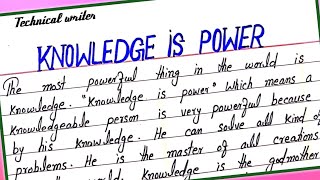 Technical writer
KNOWLEDGE IS POWER
The most powerful thing in the world is
knowledge. "Knowledge is power" which means a
knowledgeable person is very powerful because
by his knowledge. He can solve all kind of
problems. He is the master of all creations
world. Knowledge is the godmother